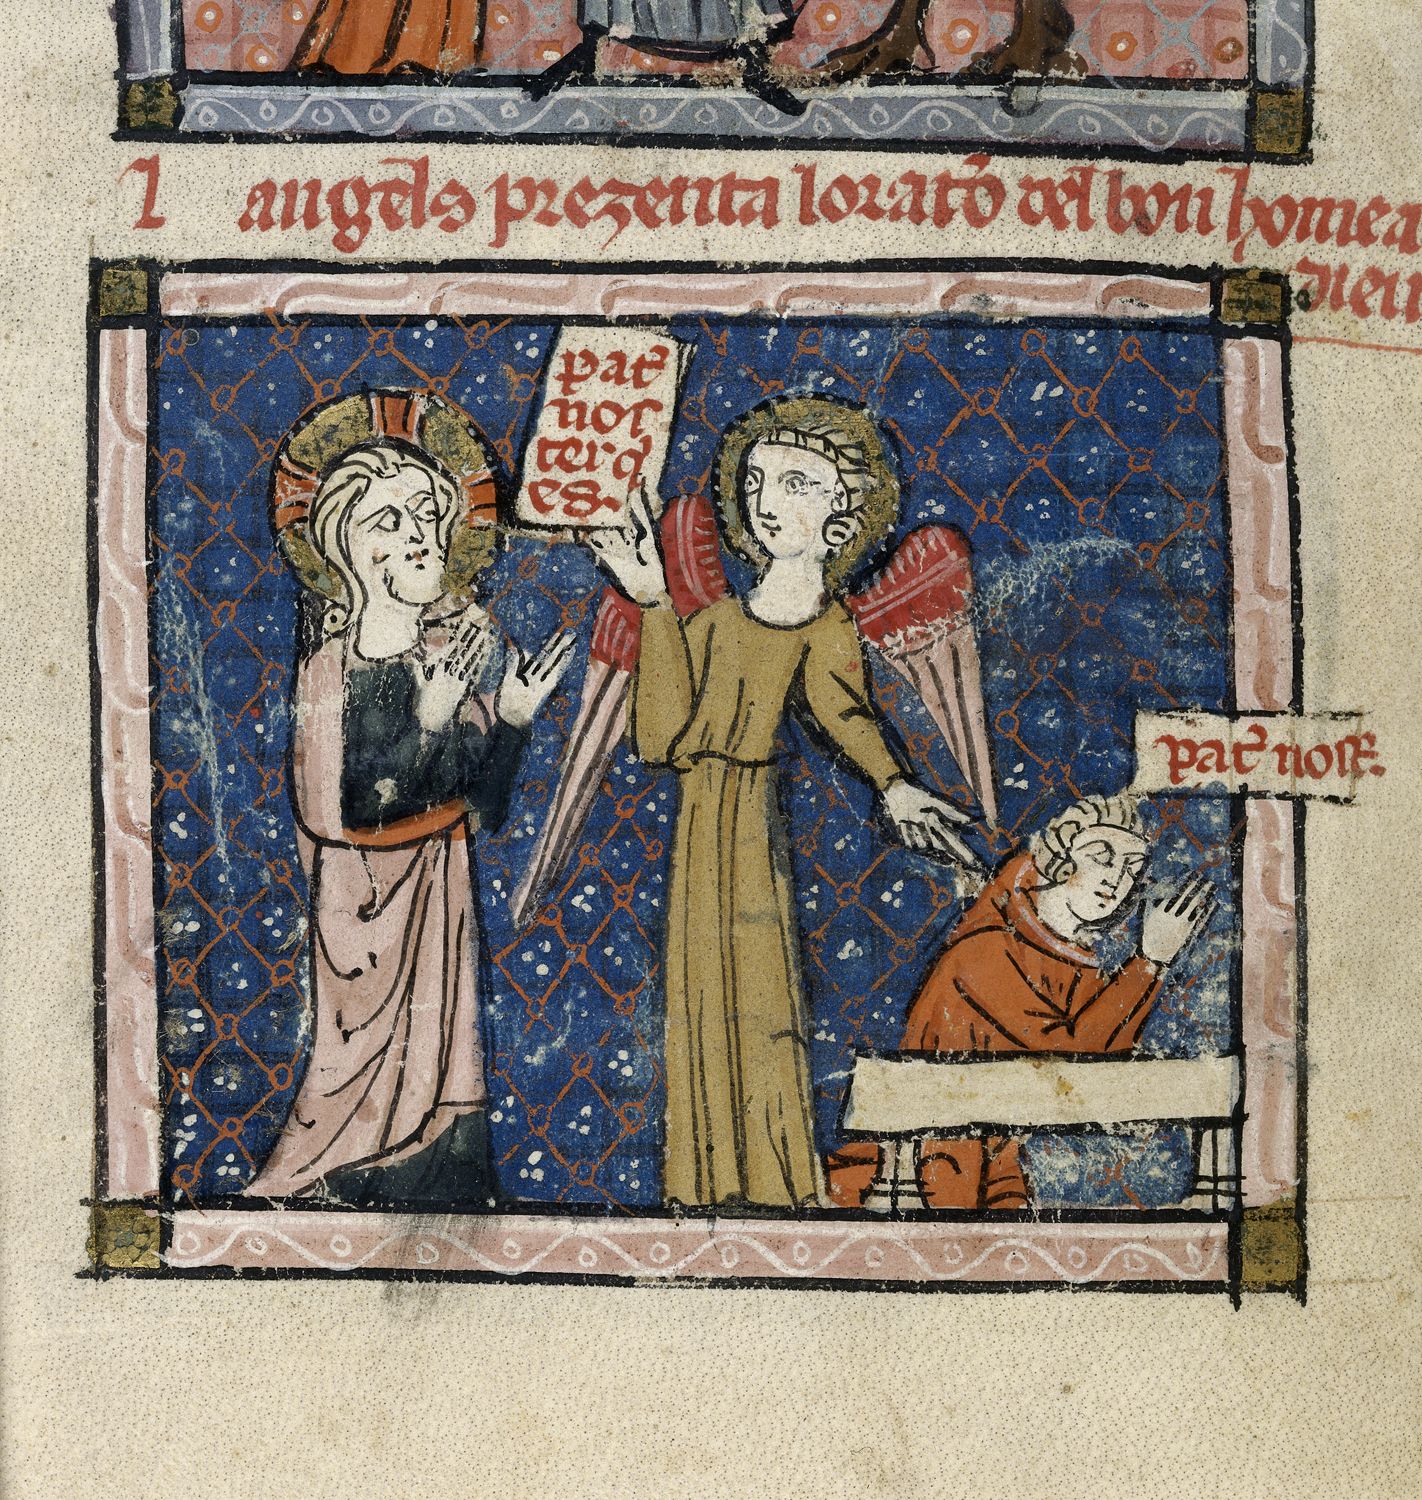 I angels prezenta lorat͛o del bon home a
dieu
pat͛
nos
ter q͛
es.
pat͛ nost͛.